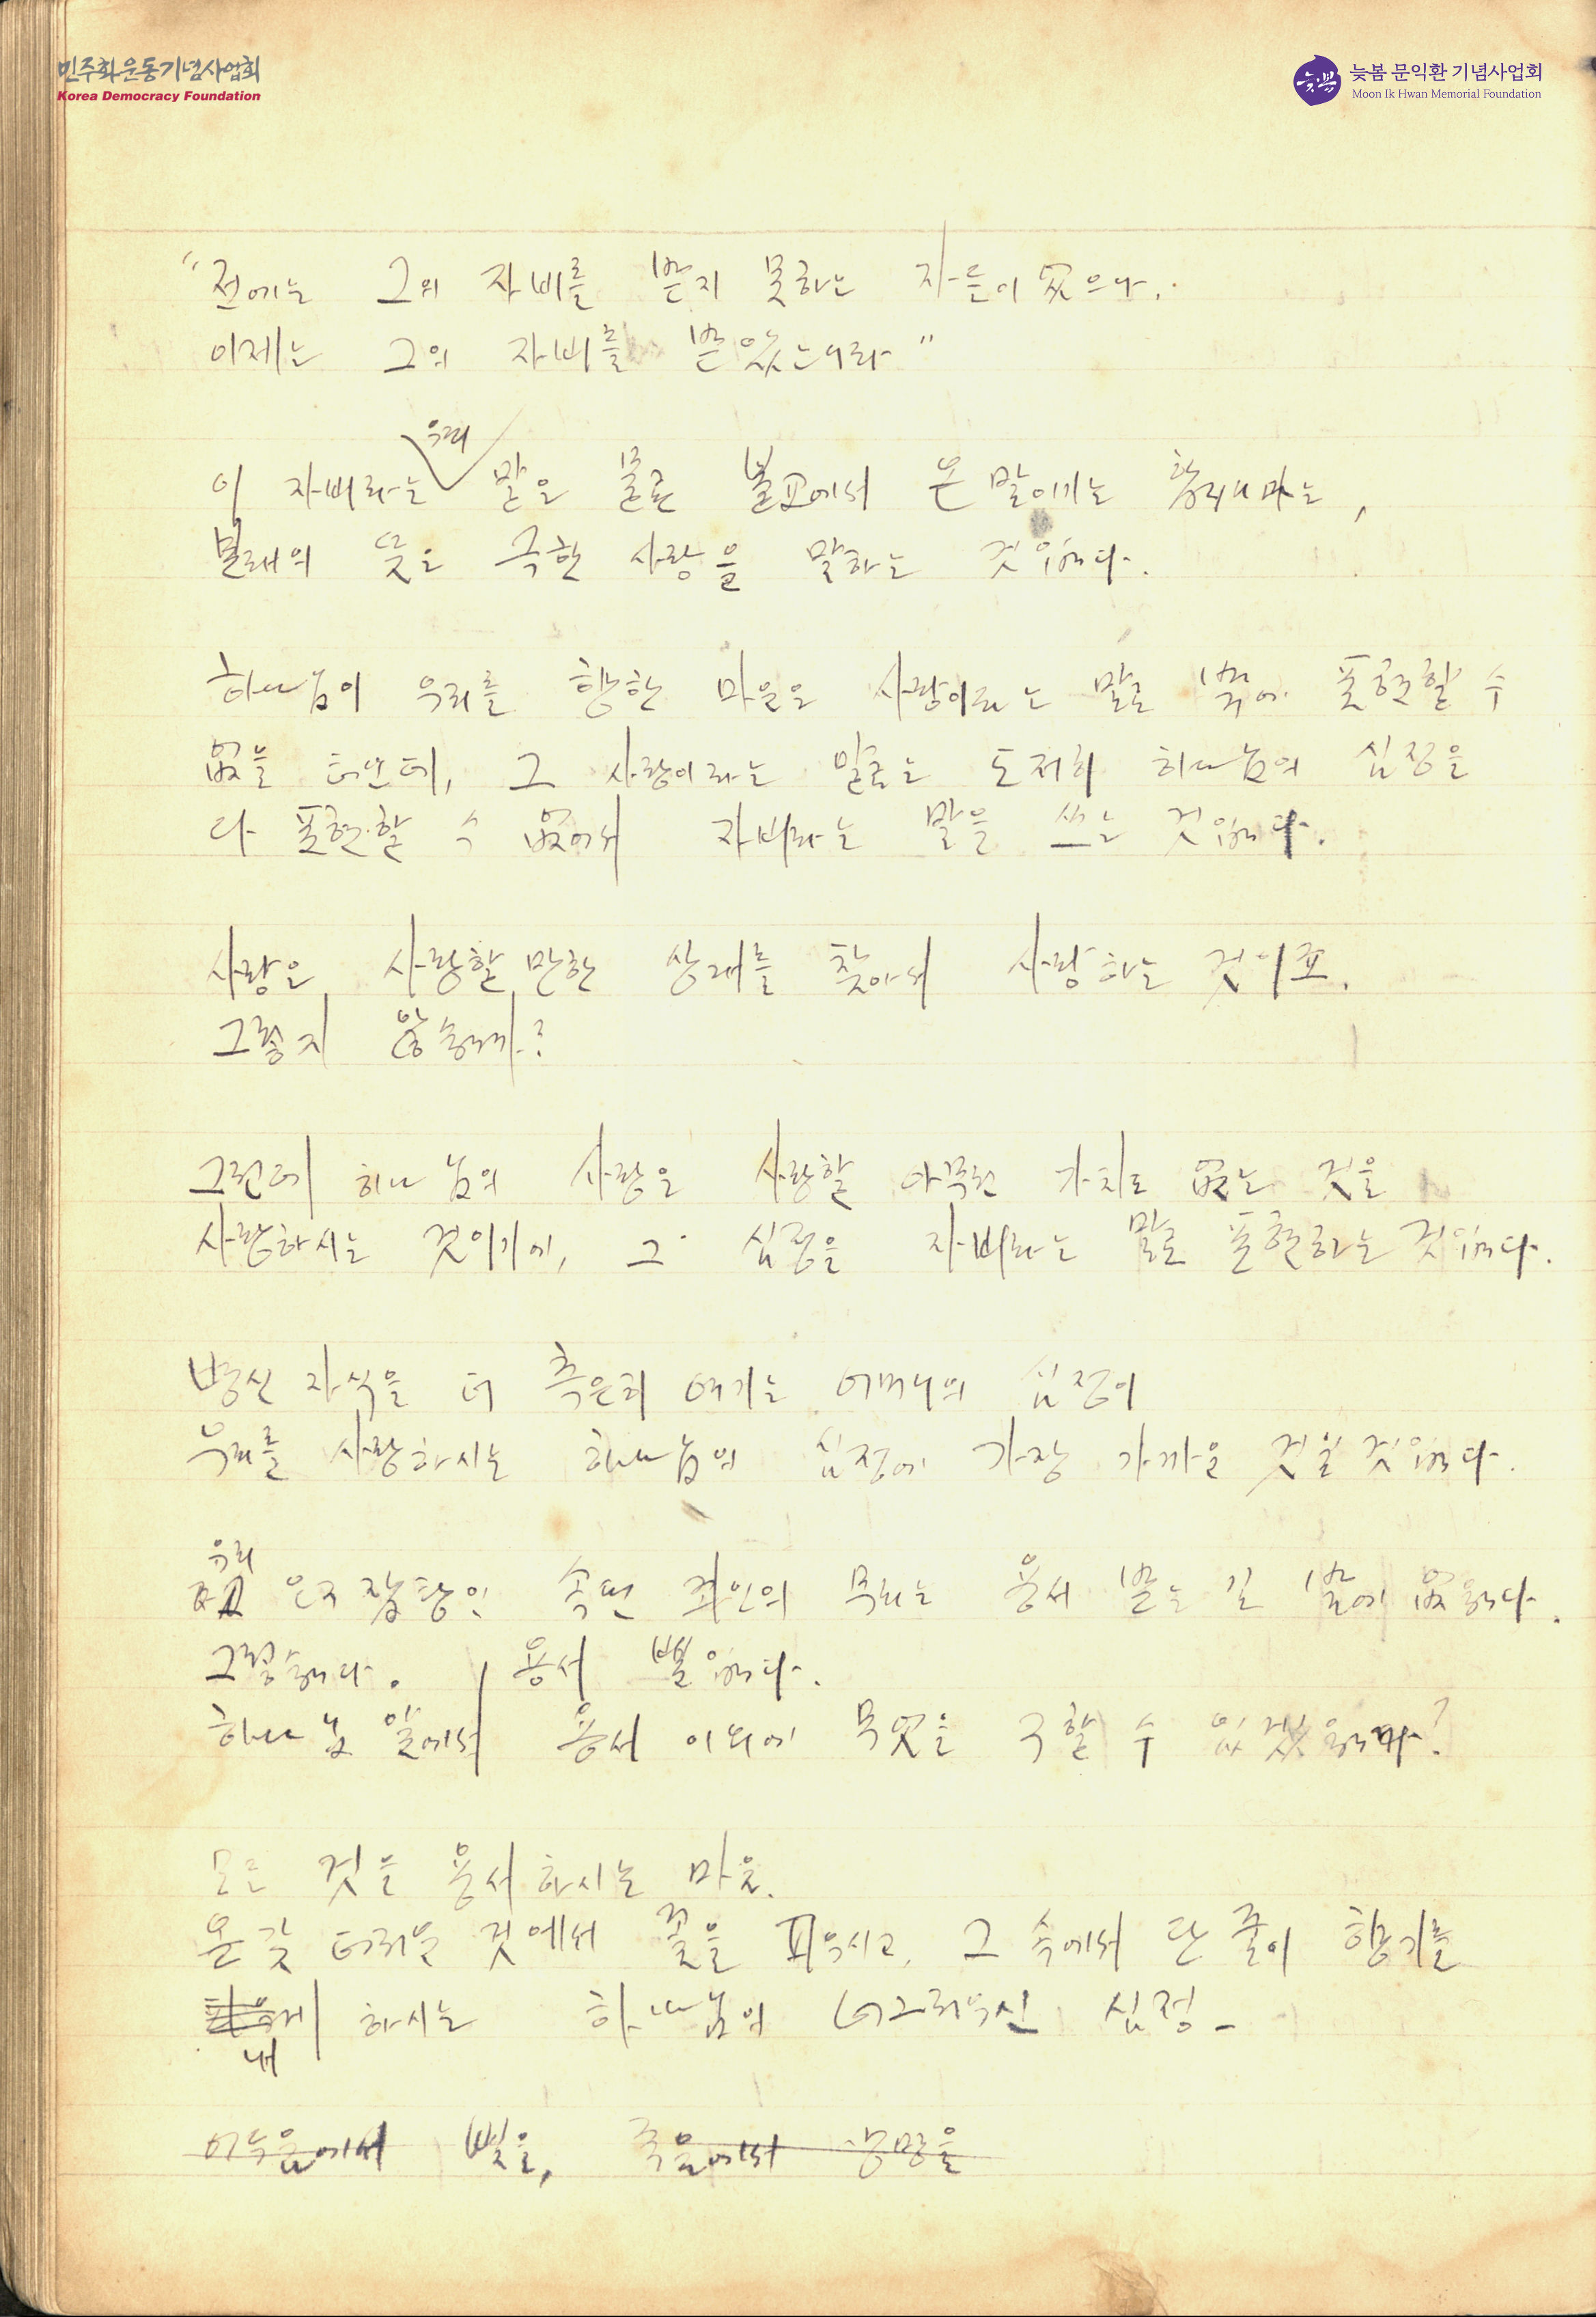 민주화운동기념사업회
Korea Democracy Foundation
늦봄
늦봄 문익환 기념사업회
Moon Ik Hwan Memorial Foundation
"전에는 그의 자비를 받지 못하는 자들이 였으나,
이제는 그의 자비를 받았느니라"
우리
이 자비라는 말은 물론 불교에서 온 말이기는 합니다마는,
본래의 뜻은 극한 사랑을 말하는 것입니다.
하나님이 우리를 향한 마음은 사랑이라는 말로 밖에 표현할 수
없을 터인데, 그 사랑이라는 말로는 도저히 하나님의 심정을
다 표현할 수 없어서 자비라는 말을 쓰는 것입니다.
사랑은 사랑할 만한 상대를 찾아서 사랑하는 것이죠.
그렇지 않습니까?
그런데 하나님의 사랑은 사랑할 아무런 가치도 없는 것을
사랑하시는 것이기에, 그 심정을 자비라는 말로 표현하는 것입니다.
병신 자식을 더 측은히 여기는 어머니의 심정이
우리를 사랑하시는 하나님의 심정에 가장 가까운 것일 것입니다.
우리
속된 죄인의 무리는 용서 받는 길 밖에 없습니다.
그렇습니다. 용서 뿐입니다.
하나님 앞에서 용서 이외에 무엇을 구할 수 있겠습니까?
모든 것을 용서하시는 마음.
온갖 더러운 것에서 꽃을 피우시고, 그 속에서 단 줄이 향기를
내게 하시는 하나님의 너그러우신 심정_
어두움에서 빛을, 죽음에서 생명을